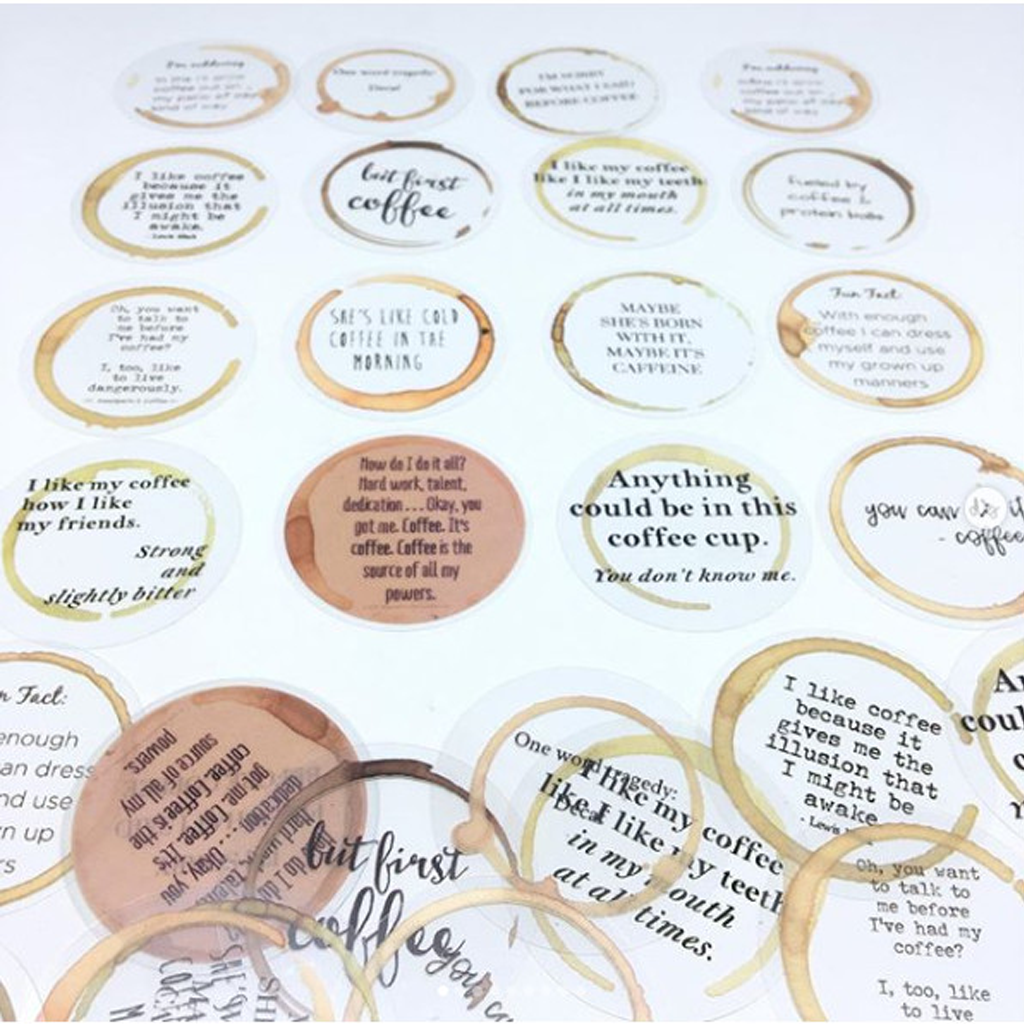 I'm suffering
One word tragedy:
Decaf
I'M SORRY
FOR WHAT I SAID
BEFORE COFFEE
I'm suffering
I like coffee
because it
gives me the
illusion that
I might be
awake.
but first
coffee
I like my coffee
like I like my teeth:
in my mouth
at all times.
fueled by
coffee &
protein balls
Oh, you want
to talk to
me before
I've had my
coffee?
I, too, like
to live
dangerously.
SHE'S LIKE COLD
COFFEE IN THE
MORNING
MAYBE
SHE'S BORN
WITH IT,
MAYBE IT'S
CAFFEINE
Fun Fact:
With enough
coffee I can dress
myself and use
my grown up
manners
I like my coffee
how I like
my friends.
Strong
and
slightly bitter
How do I do it all?
Hard work, talent,
dedication... Okay, you
got me. Coffee. It's
coffee. Coffee is the
source of all my
powers.
Anything
could be in this
coffee cup.
You don't know me.
you can do it
- coffee
n Fact:
enough
an dress
nd use
n up
rs
How do I do
Hard work, talent
dedication...
Okay, you
got me. Coffee. It's
coffee. Coffee is the
source of all my
powers.
but first
coffee
One word tragedy:
Decaf
I like my coffee
like I like my teeth
in my mouth
at all times.
I like coffee
because it
gives me the
illusion that
I might be
awake.
- Lewis
An
coul
c
Y
Oh, you want
to talk to
me before
I've had my
coffee?
I, too, like
to live
SHE'S
you ca